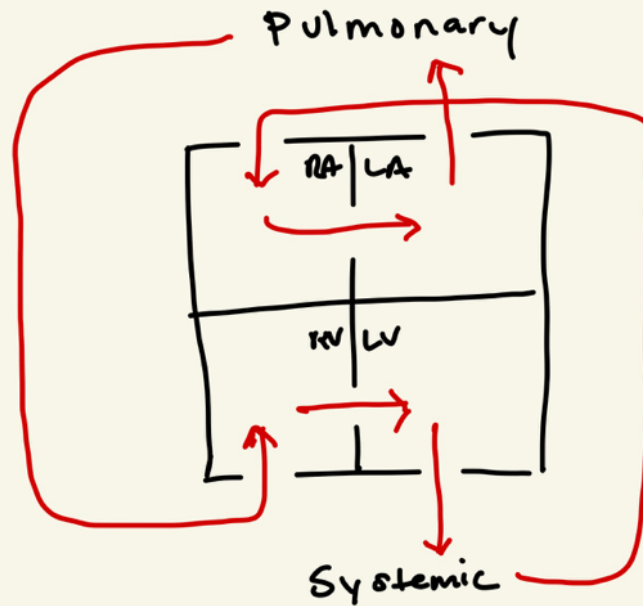 Pulmonary
RA LA
RV LV
Systemic